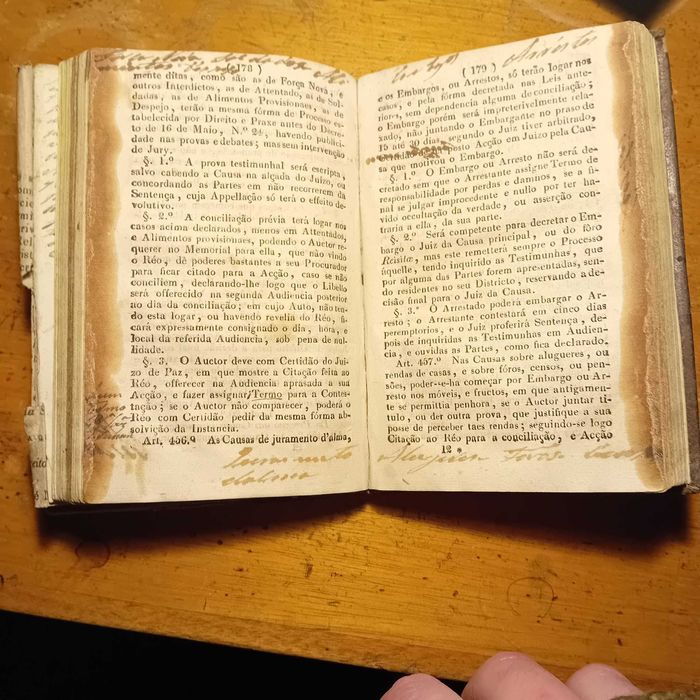 ( 178 )
mente ditas, como são as de Força Nova, e
outros Interdictos, as de Attentado, as de Sol-
dadas, as de Alimentos Provisionaes, as de
Despejo, terão a mesma fórma de Processo es-
tabelecida por Direito e Praxe antes do Decre-
to de 16 de Maio, N.º 24, havendo publicida-
de nas provas e debates; mas sem intervenção
de Jury.
§. 1.º A prova testimunhal será escripta,
salvo cabendo a Causa na alçada do Juizo, ou
concordando as Partes em não recorrerem da
Sentença, cuja Appellação só terá o effeito de-
volutivo.
§. 2.º A conciliação prévia terá logar nos
casos acima declarados, menos em Attentados,
e Alimentos provisionaes, podendo o Auctor re-
querer no Memorial para ella, que não vindo
o Réo, dê poderes bastantes a seu Procurador
para ficar citado para a Acção, caso se não
conciliem, declarando-lhe logo que o Libello
será offerecido na segunda Audiencia posterior
ao dia da conciliação; em cujo Auto, não ten-
do esta logar, ou havendo revelia do Réo, fi-
cará expressamente consignado o dia, hora, e
local da referida Audiencia, sob pena de nul-
lidade.
§. 3. O Auctor deve com Certidão do Jui-
zo de Paz, em que mostre a Citação feita ao
Réo, offerecer na Audiencia aprasada a sua
Acção, e fazer assignar Termo para a Contes-
tação; se o Auctor não comparecer, poderá o
Réo com Certidão pedir da mesma fórma ab-
solvição da Instancia.
Art. 456.º As Causas de juramento d'alma,
Juramento
dalma
Arrestos
( 179 )
e os Embargos, ou Arrestos, só terão logar nos
casos, e pela fórma decretada nas Leis ante-
riores, sem dependencia alguma de conciliação;
o Embargo porém será impreterivelmente rela-
xado, não juntando o Embargante no praso de
15 até 30 dias, segundo o Juiz tiver arbitrado,
posto Acção em Juizo pela Cau-
sa que motivou o Embargo.
§. 1.º O Embargo ou Arresto não será de-
cretado sem que o Arrestante assigne Termo de
responsabilidade por perdas e damnos, se a fi-
nal se julgar improcedente e nullo por ter ha-
vido occultação da verdade, ou asserção con-
traria a ella, da sua parte.
§. 2.º Será competente para decretar o Em-
bargo o Juiz da Causa principal, ou do fôro
Reisitæ, mas este remeterá sempre o Processo
áquelle, tendo inquirido as Testimunhas, que
por alguma das Partes forem apresentadas, sen-
do residentes no seu Districto, reservando a de-
cisão final para o Juiz da Causa.
§. 3.º O Arrestado poderá embargar o Ar-
resto; o Arrestante contestará em cinco dias
peremptorios, e o Juiz proferirá Sentença, de-
pois de inquiridas as Testimunhas em Audien-
cia, e ouvidas as Partes, como fica declarado.
Art. 457.º Nas Causas sobre alugueres, ou
rendas de casas, e sobre fóros, censos, ou pen-
sões, poder-se-ha começar por Embargo ou Ar-
resto nos móveis, e fructos, em que antigamen-
te se permittia penhora, se o Auctor juntar ti-
tulo, ou der outra prova, que justifique a sua
posse de perceber taes rendas; seguindo-se logo
Citação ao Réo para a conciliação, e Acção
12 *